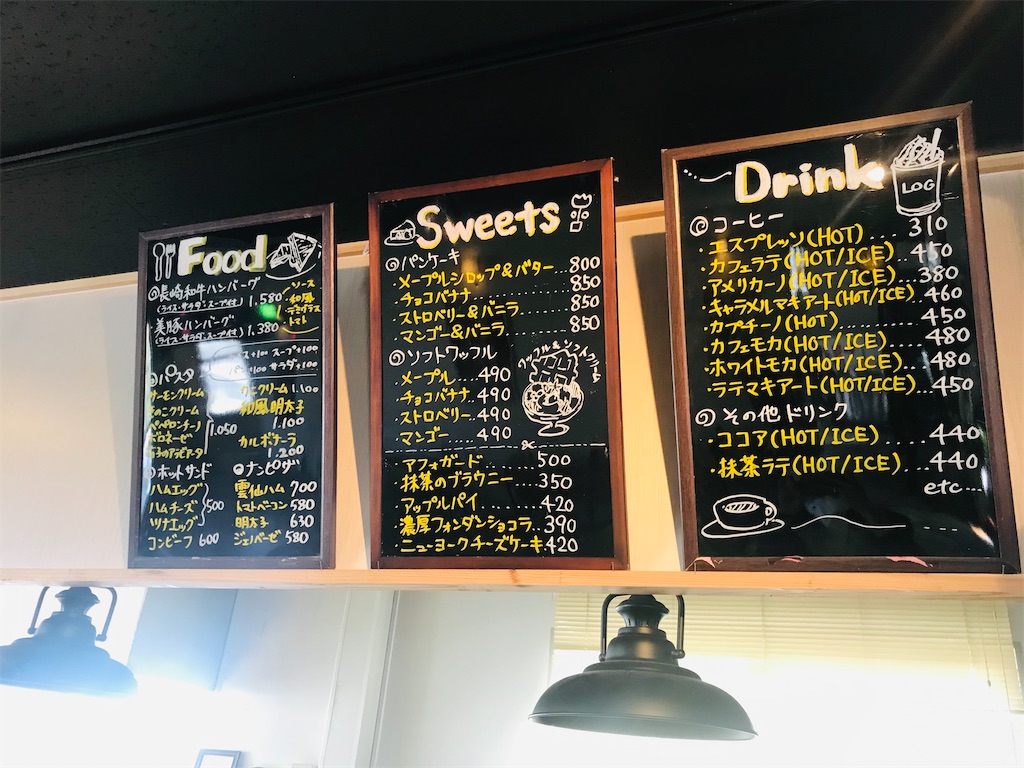 Food
◎長崎和牛ハンバーグ
(ライス・サラダ・スープ付) 1,580
美豚ハンバーグ
(ライス・サラダ・スープ付) 1,380
ソース
・和風
・デミグラス
・トマト
+100 スープ+100
+100 サラダ+100
◎パスタ
サーモンクリーム
きのこクリーム
ペペロンチーノ
ボロネーゼ
1,050
クリーム 1,100
和風明太子
1,100
カルボナーラ
1,200
◎ホットサンド
ハムエッグ
ハムチーズ
ツナエッグ
500
コンビーフ 600
◎ナンピザ
雲仙ハム 700
トマトベーコン 580
明太子 630
ジェノベーゼ 580
Sweets
◎パンケーキ
・メープルシロップ&バター... 800
・チョコバナナ... 850
・ストロベリー&バニラ... 850
・マンゴー&バニラ... 850
◎ソフトワッフル
・メープル... 490
・チョコバナナ.. 490
・ストロベリー.. 490
・マンゴー..... 490
ワッフル&ソフトクリーム
・アフォガード........ 500
・抹茶のブラウニー....350
・アップルパイ....... 420
・濃厚フォンダンショコラ..390
・ニューヨークチーズケーキ.420
Drink
LOG
◎コーヒー
・エスプレッソ(HOT).... 310
・カフェラテ(HOT/ICE)... 450
・アメリカーノ(HOT/ICE).. 380
・キャラメルマキアート(HOT/ICE).. 460
・カプチーノ(HOT)....... 450
・カフェモカ(HOT/ICE).... 480
・ホワイトモカ(HOT/ICE)... 480
・ラテマキアート(HOT/ICE)... 450
◎その他ドリンク
・ココア(HOT/ICE)..... 440
・抹茶ラテ(HOT/ICE)... 440
etc...